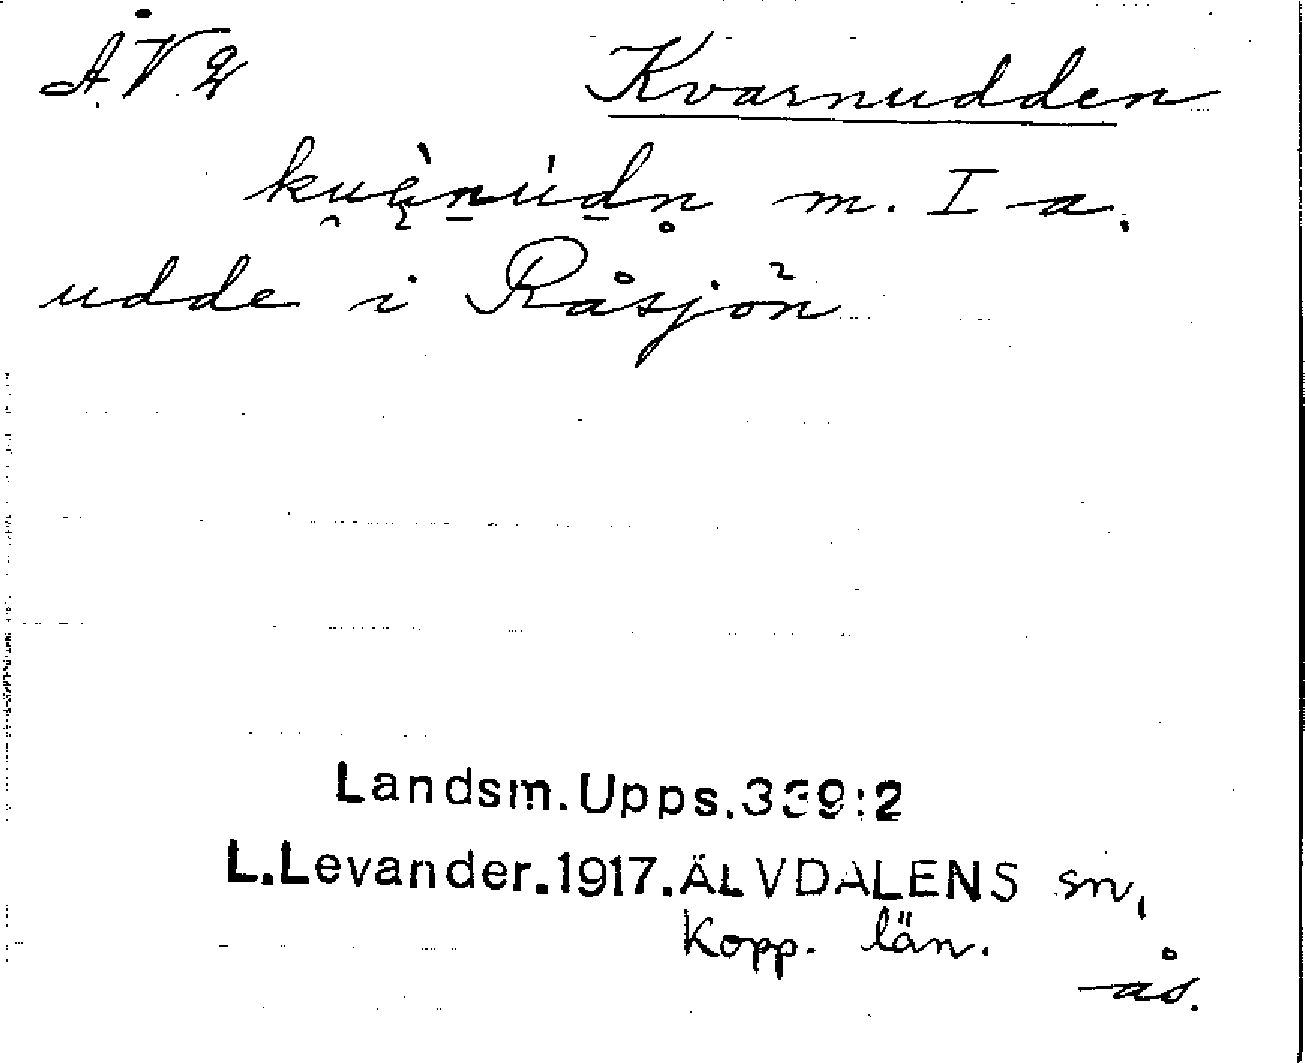 Å.V. 2 Kvarnudden
m. I a.
udde i Råsjön
Landsm. Upps. 339:2
L. Levander. 1917. ÄLVDALENS sn,
Kopp. län.
ås.